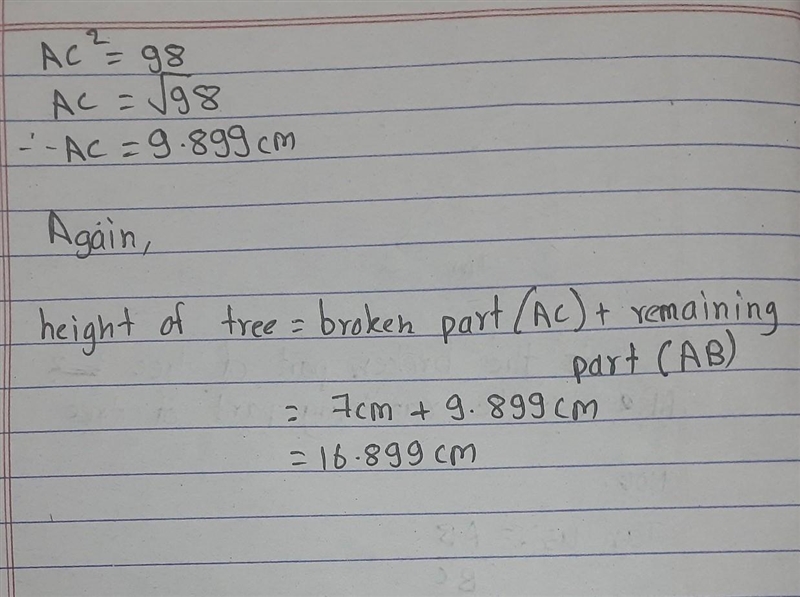 AC² = 98
AC = √98
∴ AC = 9.899 cm
Again,
height of tree = broken part (AC) + remaining
part (AB)
= 7cm + 9.899 cm
= 16.899 cm